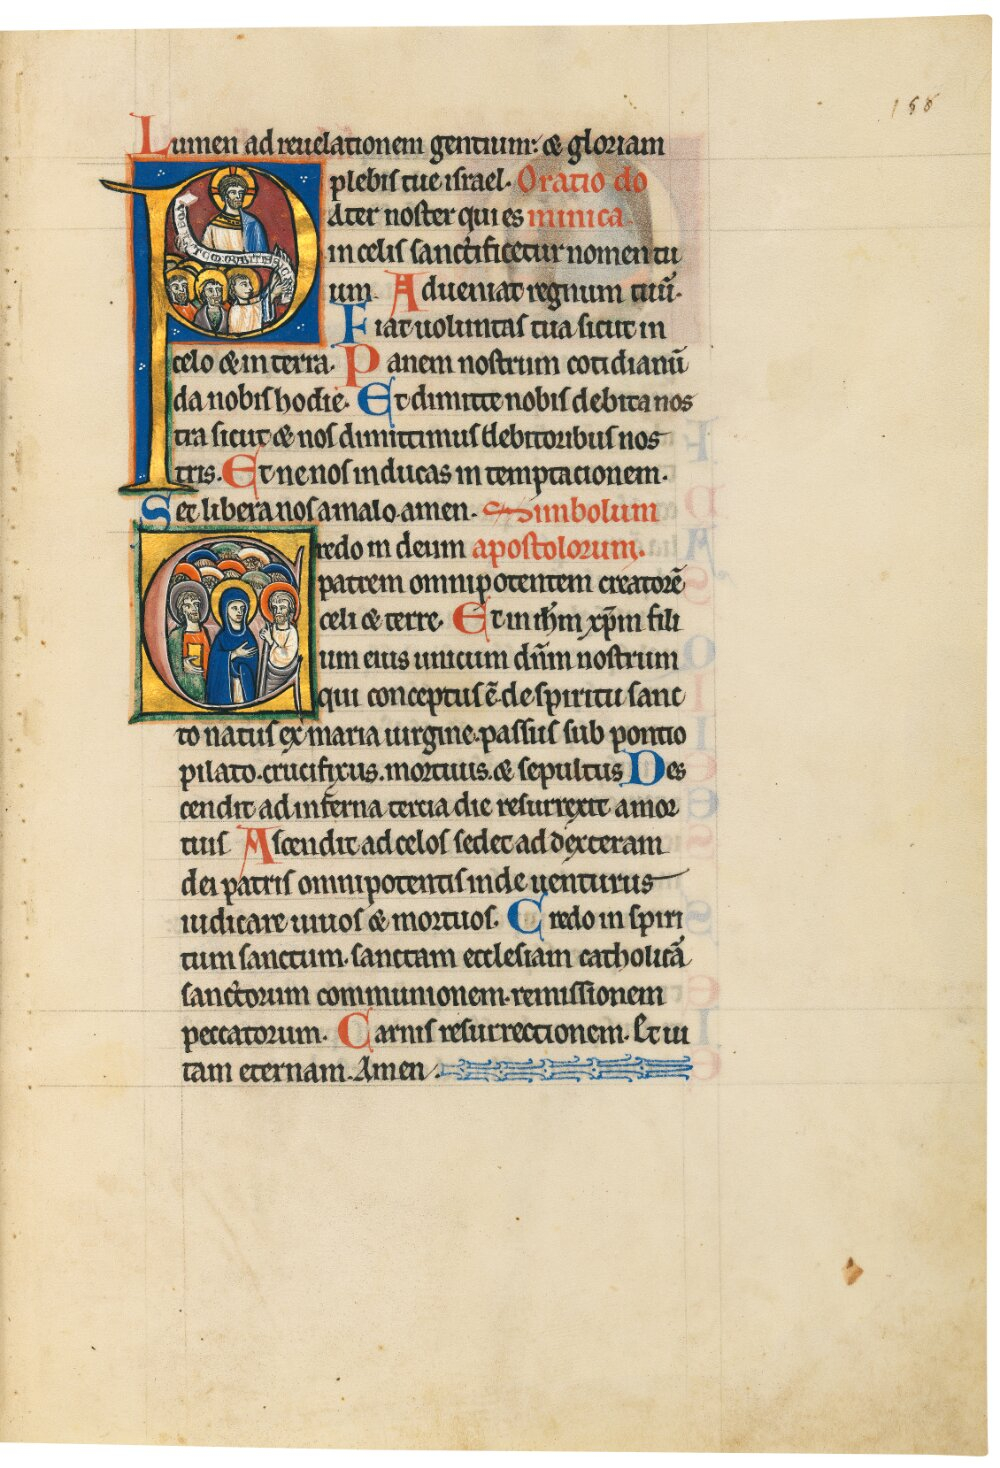 158
Lumen ad reuelationem gentium: & gloriam
plebis tue israel. Oratio do
Pater noster qui es minica
in celis sanctificetur nomen tu
um. Adueniat regnum tuū.
Fiat uoluntas tua sicut in
celo & in terra. Panem nostrum cotidianū
da nobis hodie. Et dimitte nobis debita nos
tra sicut & nos dimittimus debitoribus nos
tris. Et ne nos inducas in temptacionem.
Set libera nos a malo amen. Simbolum
Credo in deum apostolorum.
patrem omnipotentem creatorē
celi & terre. Et in ihm xp̄m fili
um eius unicum dn̄m nostrum
qui conceptus ē de spiritu sanc
to natus ex maria uirgine. passus sub pontio
pilato. crucifixus. mortuus. & sepultus Des
cendit ad inferna tercia die resurrexit a mor
tuis Ascendit ad celos sedet ad dexteram
dei patris omnipotentis inde uenturus
iudicare uiuos & mortuos. Credo in spiri
tum sanctum. sanctam ecclesiam catholicā
sanctorum communionem. remissionem
peccatorum. Carnis resurrectionem. Et ui
tam eternam. Amen.